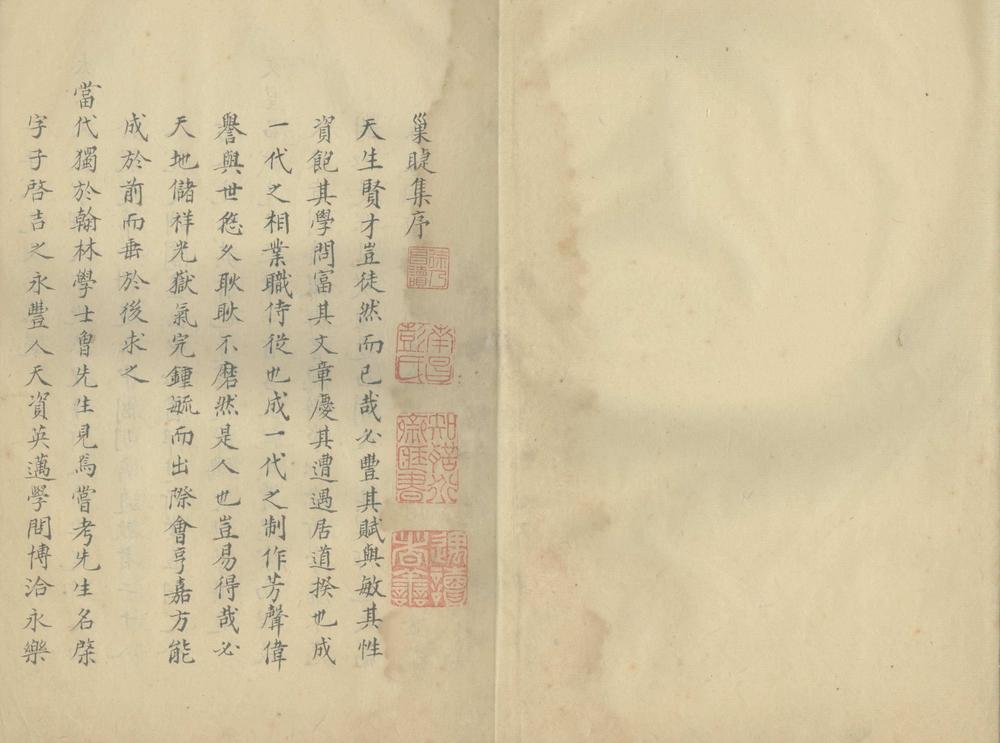 巢睫集序
徐乃昌讀
南昌彭氏
知聖道齋藏書
遇讀者善
天生賢才豈徒然而已哉必豐其賦與敏其性
資飽其學問富其文章慶其遭遇居道揆也成
一代之相業職侍從也成一代之制作芳聲偉
譽與世悠久耿耿不磨然是人也豈易得哉必
天地儲祥光嶽氣完鍾毓而出際會亨嘉方能
成於前而垂於後求之
當代獨於翰林學士曾先生見焉嘗考先生名棨
字子啓吉之永豐人天資英邁學問博洽永樂